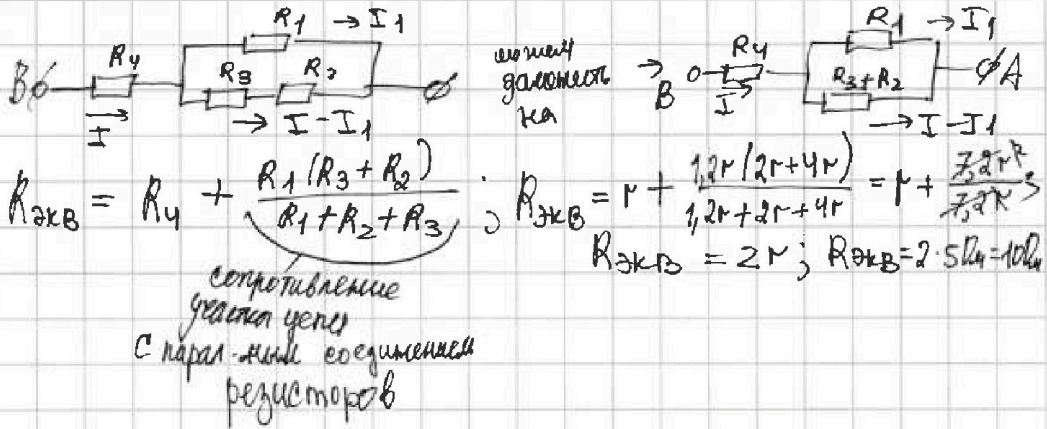 R1 → I1
B R4 R3 R2
I → I - I1
можем → B R4 R1 → I1
R3 + R2 A
на I → I - I1
Rэкв = R4 + R1(R3 + R2) / (R1 + R2 + R3) ; Rэкв = r + 1,2r(2r+4r) / (1,2r+2r+4r) = r + 7,2r² / 7,2r ;
Rэкв = 2r ; Rэкв = 2·5Ом = 10Ом
сопротивление
участка цепи
с парал-ным соединением
резисторов